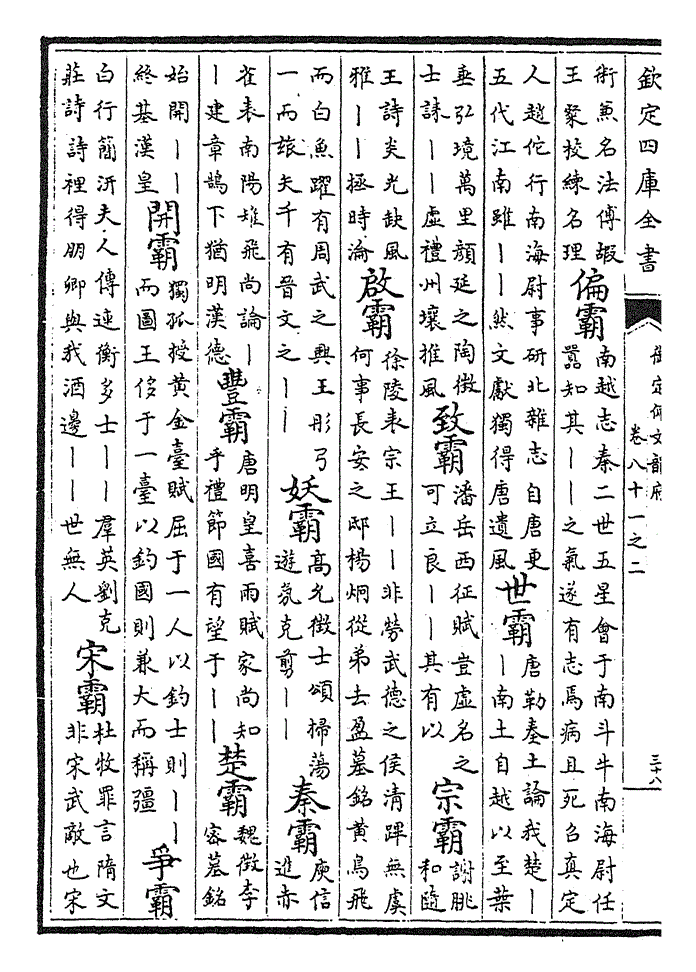 欽定四庫全書
御定佩文韻府
卷八十一之二
三十八
術兼名法傅嘏
王聚校練名理
偏霸
南越志秦二世五星會于南斗牛南海尉任
囂知其丨丨之氣遂有志焉病且死召真定
人趙佗行南海尉事研北雜志自唐更
五代江南雖丨丨然文獻獨得唐遺風
世霸
唐勒奏土論我楚丨
丨南土自越以至葉
垂弘境萬里顔延之陶徵
士誄丨丨虛禮州壤推風
致霸
潘岳西征賦豈虛名之
可立良丨丨其有以
宗霸
謝朓
和隨
王詩炎光缺風
雅丨丨拯時淪
啟霸
徐陵表宗王丨丨非勞武德之侯清蹕無虞
何事長安之邸楊炯從弟去盈墓銘黄鳥飛
而白魚躍有周武之興王彤弓
一而玈矢千有晉文之丨丨
妖霸
高允徵士頌掃蕩
遊氛克剪丨丨
秦霸
庾信
進赤
雀表南陽雉飛尚論丨
丨建章鵲下猶明漢德
豐霸
唐明皇喜雨賦家尚知
乎禮節國有望于丨丨
楚霸
魏徵李
密墓銘
始開丨丨
終基漢皇
開霸
獨孤授黄金臺賦屈于一人以釣士則丨丨
而圖王侈于一臺以釣國則兼大而稱疆
爭霸
白行簡沂夫人傳連衡多士丨丨羣英劉克
莊詩詩裡得朋卿與我酒邊丨丨世無人
宋霸
杜牧罪言隋文
非宋武敵也宋